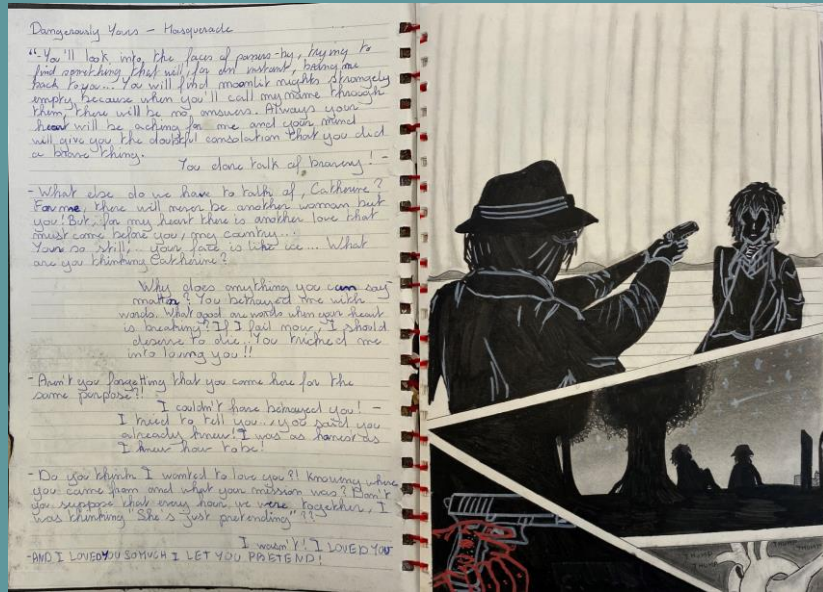 Dangerously Yours - Masquerade
"-You'll look into the faces of passers-by, trying to
find something that will, for an instant, bring me
back to you... You will find moonlit nights strangely
empty because when you'll call my name through
them, there will be no answers. Always your
heart will be aching for me and your mind
will give you the doubtful consolation that you did
a brave thing.
You dare talk of bravery! -
- What else do we have to talk of, Catherine?
For me, there will never be another woman but
you! But, for my heart there is another love that
must come before you, my country...
Your so still... your face is like ice... What
are you thinking Catherine?
Why does anything you can say
matter? You betrayed me with
words. What good are words when your heart
is breaking? If I fail now, I should
deserve to die. You tricked me
into loving you!!
- Aren't you forgetting that you came here for the
same purpose?!
I couldn't have betrayed you! -
I tried to tell you... you said you
already knew! I was as honest as
I knew how to be!
- Do you think I wanted to love you?! Knowing where
you came from and what your mission was? Don't
you suppose that every hour we were together, I
was thinking "She's just pretending"??
I wasn't! I LOVED YOU
-AND I LOVED YOU SO MUCH I LET YOU PRETEND!
THUMP
THUMP
THUMP